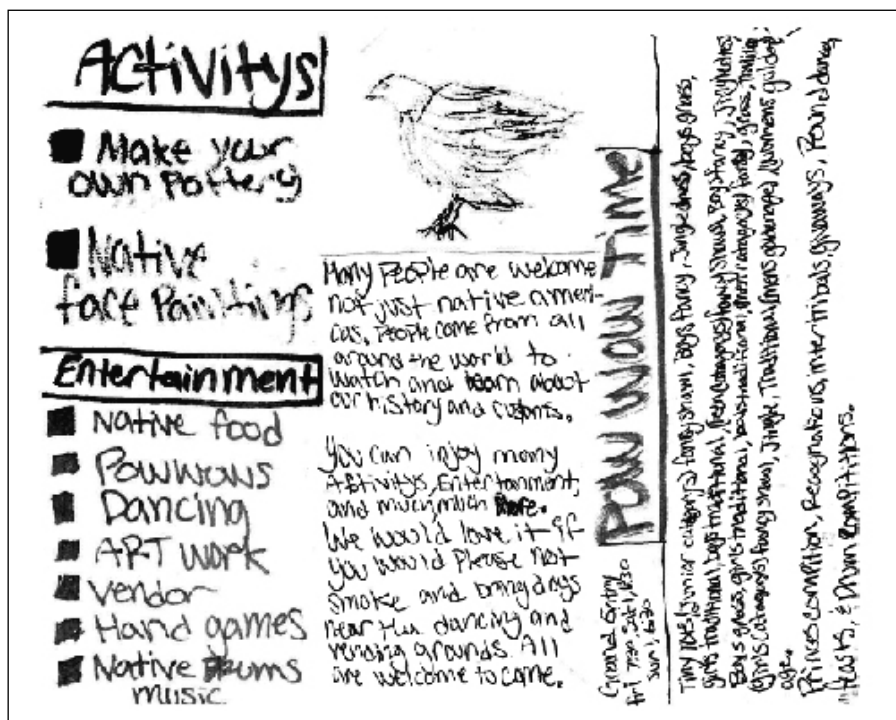 Activitys
Make your
own Pottery
Native
face Paintings
Entertainment
Native food
Powwows
Dancing
ART work
Vendor
Hand games
Native Drums
music
Many People are welcome
not just native ameri-
cas. People come from all
around the world to
watch and learn about
our history and customs.
You can injoy many
Activitys, Entertainment,
and much, much more.
We would love it if
you would Please not
smoke and bring dogs
near the dancing and
vending grounds. All
are welcome to come.
POW WOW Time
Grand Entry
Fri 7:30, Sat 1, 6:30
Sun 1, 6:30
Tiny tots (junior category) fancy shawl, Boys fancy, Jingle dress, boys grass,
girls traditional, boys traditional, (teen category) fancy shawl, Boys fancy,
Boys grass, girls traditional, boys traditional, (men category) fancy, grass,
(girls category) fancy shawl, Jingle, Traditional,
age.
Princes compition, Recognations, intertribals, giveaways, Round dance,
feasts, & Drum Compititions.